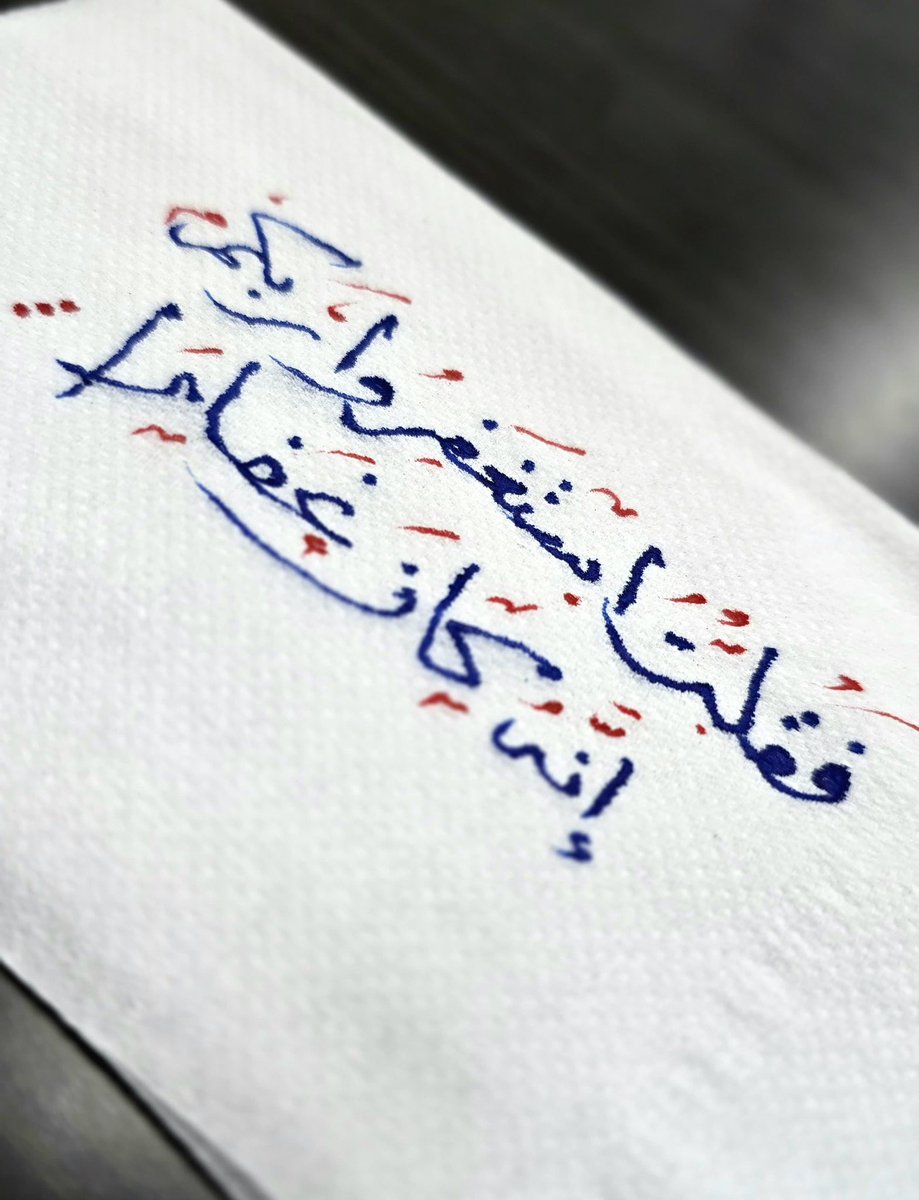 فقلت استغفروا ربكم
إنه كان غفارا ...